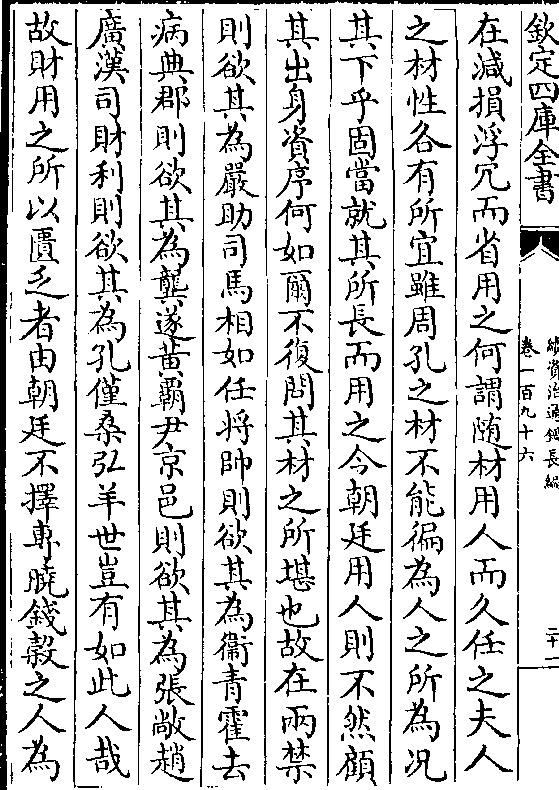 欽定四庫全書
續資治通鑑長編
卷一百九十六
二十一
在減損浮冗而省用之何謂随材用人而久任之夫人
之材性各有所宜雖周孔之材不能徧為人之所為况
其下乎固當就其所長而用之今朝廷用人則不然顧
其出身資序何如爾不復問其材之所堪也故在兩禁
則欲其為嚴助司馬相如任将帥則欲其為衞青霍去
病典郡則欲其為龔遂黃霸尹京邑則欲其為張敞趙
廣漢司財利則欲其為孔僅桑弘羊世豈有如此人哉
故財用之所以匱乏者由朝廷不擇專曉錢穀之人為